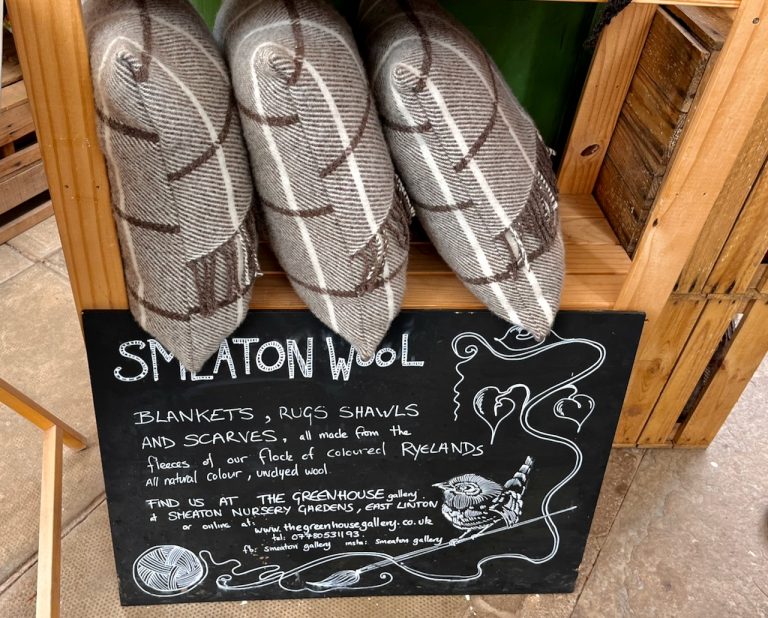 SMEATON WOOL
BLANKETS, RUGS SHAWLS
AND SCARVES, all made from the
fleeces of our flock of coloured RYELANDS
All natural colour, undyed wool.
FIND US AT THE GREENHOUSE gallery
at SMEATON NURSERY GARDENS, EAST LINTON
or online at: www.thegreenhousegallery.co.uk
tel: 07780531193.
fb: smeaton gallery insta: smeaton gallery